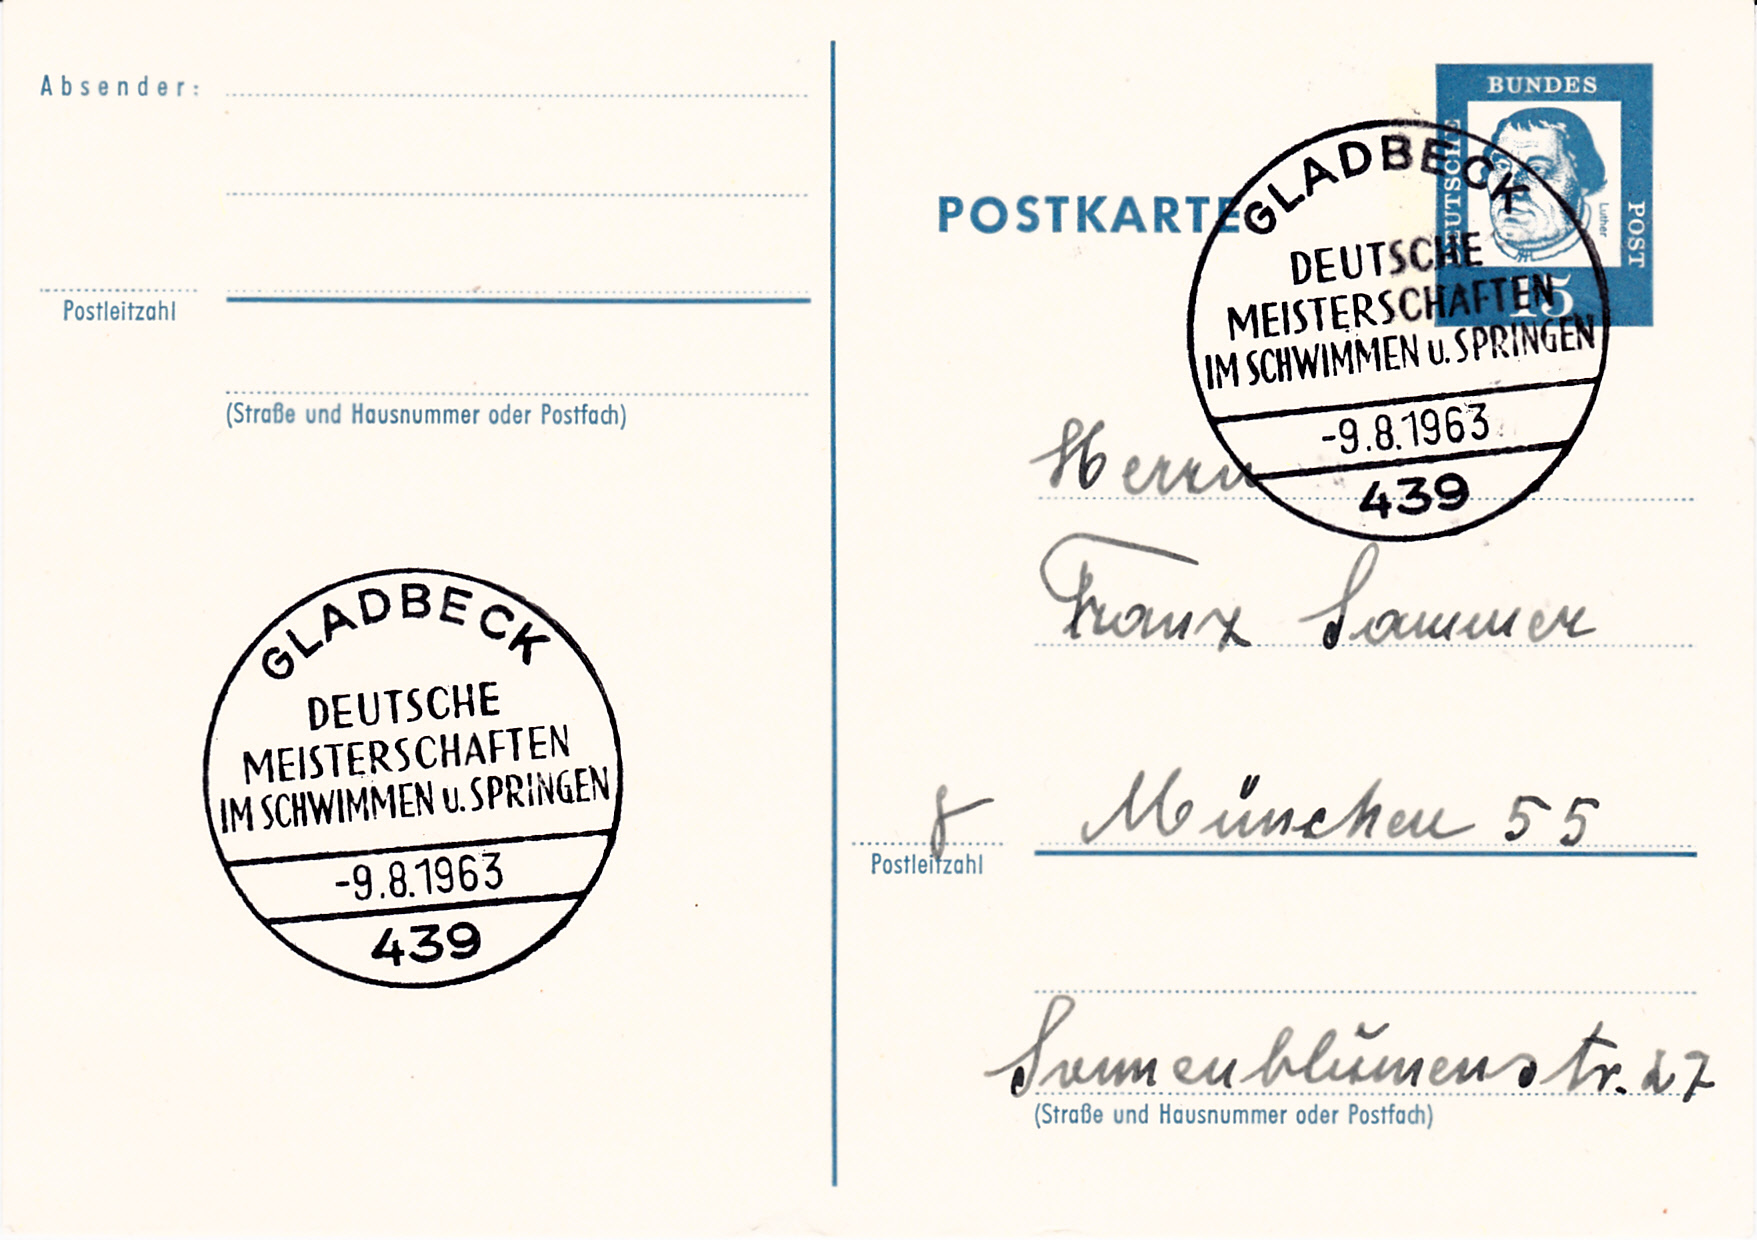 Absender:
Postleitzahl
(Straße und Hausnummer oder Postfach)
GLADBECK
DEUTSCHE
MEISTERSCHAFTEN
IM SCHWIMMEN u. SPRINGEN
-9.8.1963
439
POSTKARTE
BUNDES
DEUTSCHE
POST
Luther
15
GLADBECK
DEUTSCHE
MEISTERSCHAFTEN
IM SCHWIMMEN u. SPRINGEN
-9.8.1963
439
Herrn
Franz Sammer
8 München 55
Postleitzahl
Sonnenblumenstr. 27
(Straße und Hausnummer oder Postfach)